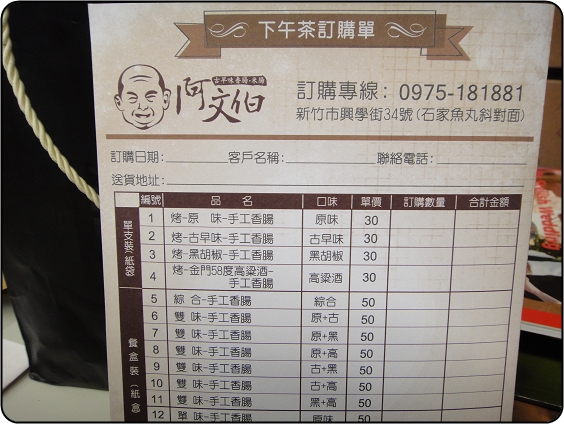 下午茶訂購單
古早味香腸·米腸
阿文伯
訂購專線：0975-181881
新竹市興學街34號(石家魚丸斜對面)
訂購日期： 客戶名稱： 聯絡電話：
送貨地址：
編號 品名 口味 單價 訂購數量 合計金額
單支裝(紙袋
1 烤-原 味-手工香腸 原味 30
2 烤-古早味-手工香腸 古早味 30
3 烤-黑胡椒-手工香腸 黑胡椒 30
4 烤-金門58度高粱酒-手工香腸 高粱酒 30
餐盒裝(紙盒
5 綜 合-手工香腸 綜合 50
6 雙 味-手工香腸 原+古 50
7 雙 味-手工香腸 原+黑 50
8 雙 味-手工香腸 原+高 50
9 雙 味-手工香腸 古+黑 50
10 雙 味-手工香腸 古+高 50
11 雙 味-手工香腸 黑+高 50
12 單 味-手工香腸 原味 50